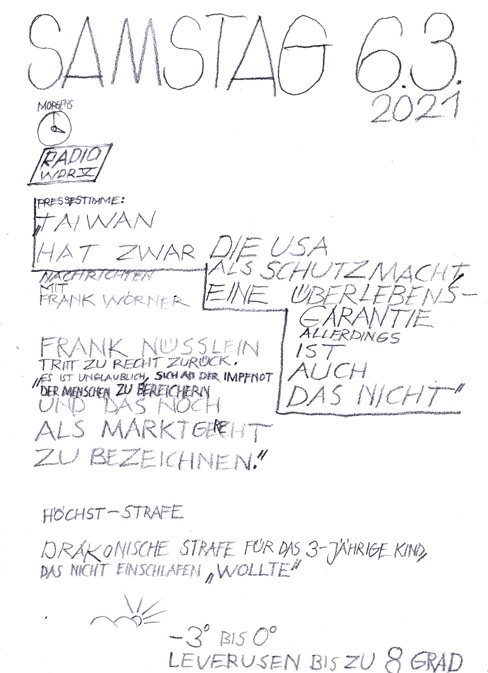 SAMSTAG 6.3.
2021
MORGENS
RADIO
WDR V
PRESSESTIMME:
„TAIWAN
HAT ZWAR DIE USA
ALS SCHUTZMACHT,
EINE ÜBERLEBENS-
GARANTIE
ALLERDINGS
IST
AUCH
DAS NICHT"
NACHRICHTEN
MIT
FRANK WÖRNER
FRANK NÜSSLEIN
TRITT ZU RECHT ZURÜCK.
„ES IST UNGLAUBLICH, SICH AN DER IMPFNOT
DER MENSCHEN ZU BEREICHERN
UND DAS NOCH
ALS MARKTGERECHT
ZU BEZEICHNEN."
HÖCHST-STRAFE
DRAKONISCHE STRAFE FÜR DAS 3-JÄHRIGE KIND,
DAS NICHT EINSCHLAFEN „WOLLTE"
-3° BIS 0°
LEVERUSEN BIS ZU 8 GRAD